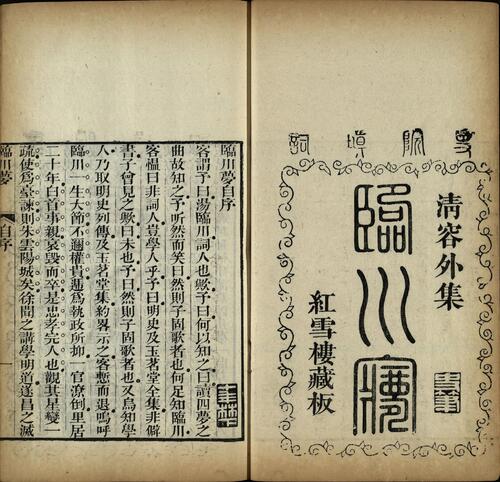 史院填詞
清容外集
臨川夢
紅雪樓藏板
臨川夢自序
客謂予曰湯臨川詞人也歟予曰何以知之曰讀四夢之
曲故知之予听然而笑曰然則子固歌者也何足知臨川
客慍曰非詞人豈學人乎予曰明史及玉茗堂全集非僻
書子曾見之歟曰未也予曰然則子固歌者也又烏知學
人乃取明史列傳及玉茗堂集約畧示之客慙而退嗚呼
臨川一生大節不邇權貴遞為執政所抑一官潦倒里居
二十年白首事親哀毀而卒是忠孝完人也觀其星變一
疏使為臺諫則朱雲陽城矣徐聞之講學明道遂昌之滅
臨川夢
自序
一